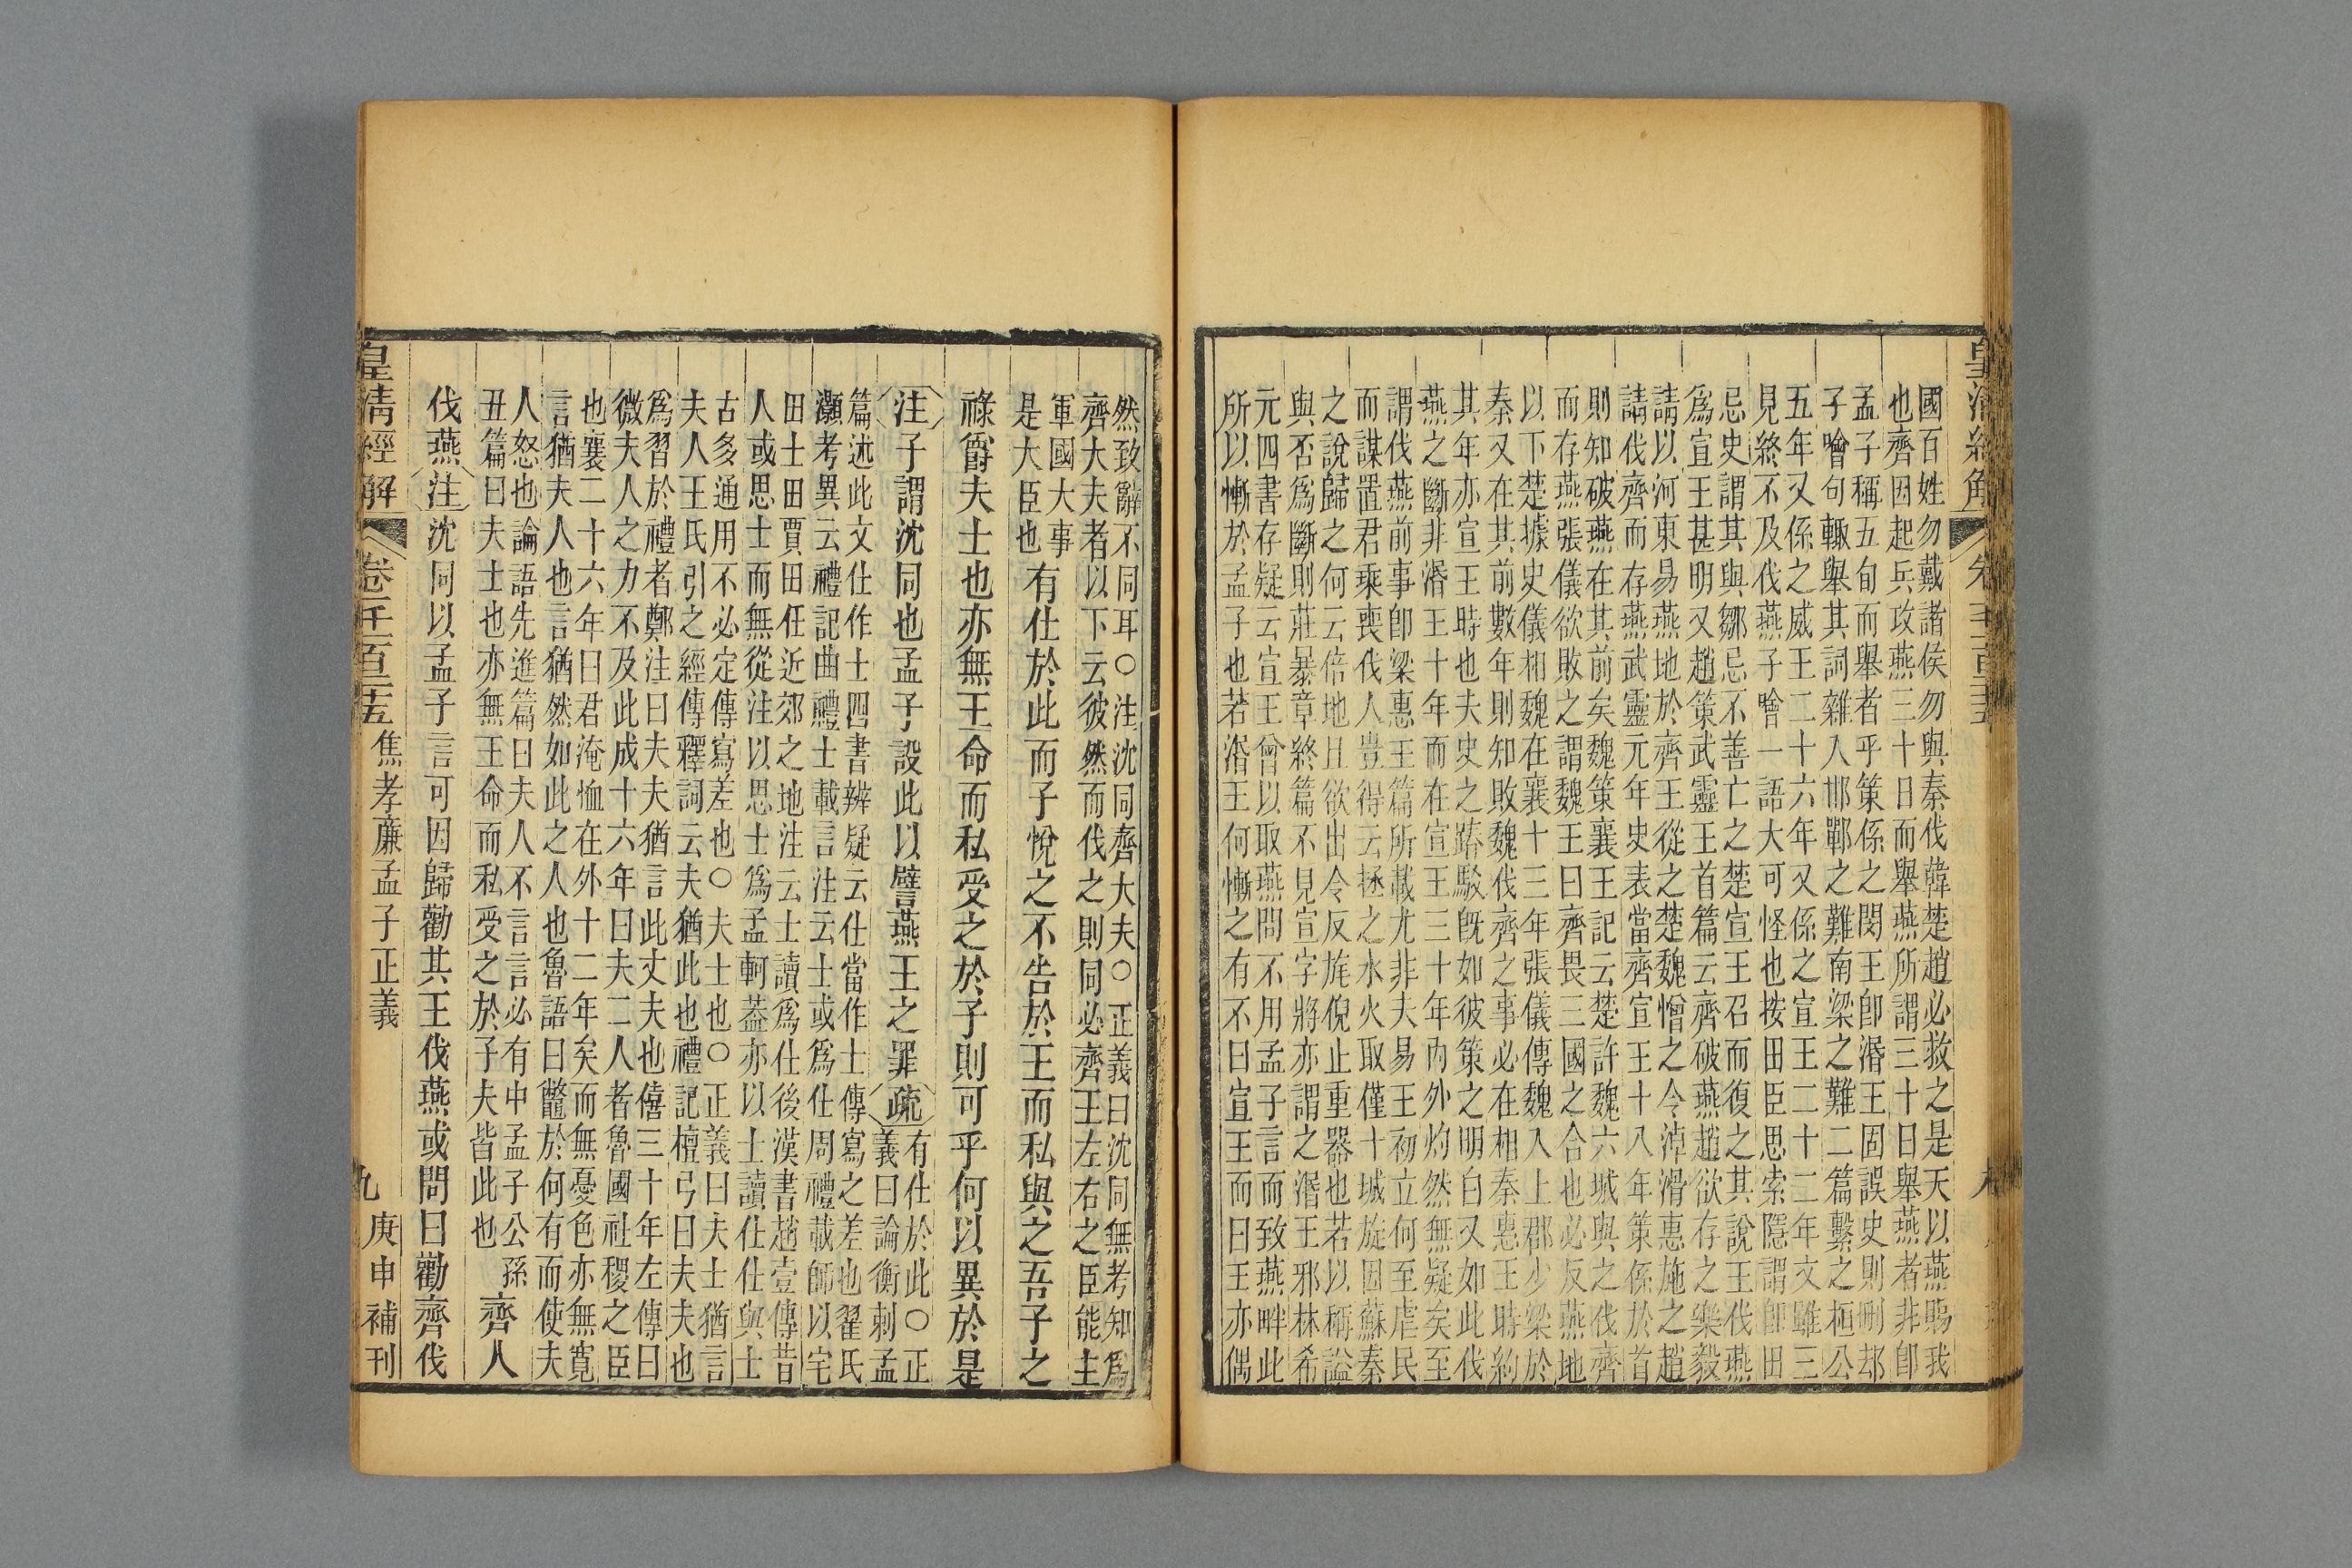 皇清經解
國百姓勿戴諸侯勿與秦伐韓楚趙必救之是天以燕賜我
也齊因起兵攻燕三十日而舉燕所謂三十日舉燕者非卽
孟子稱五旬而舉者乎策係之閔王卽湣王固誤史則刪却
子噲句輒舉其詞雜入邯鄲之難南梁之難二篇繫之桓公
五年又係之威王二十六年又係之宣王二十二年文雖三
見終不及伐燕子噲一語大可怪也按田臣思索隱謂卽田
忌史謂其與鄒忌不善亡之楚宣王召而復之其說王伐燕
爲宣王甚明又趙策武靈王首篇云齊破燕趙欲存之樂毅
請以河東易燕地於齊王從之楚魏憎之令淖滑惠施之趙
請伐齊而存燕武靈元年史表當齊宣王十八年策係於首
則知破燕在其前矣魏策襄王記云楚許魏六城與之伐齊
而存燕張儀欲敗之謂魏王曰齊畏三國之合也必反燕地
以下楚據史儀相魏在襄十三年張儀傳魏入上郡少梁於
秦又在其前數年則知敗魏伐齊之事必在相秦惠王時約
其年亦宣王時也夫史之踳駁旣如彼策之明白又如此伐
燕之斷非湣王十年而在宣王三十年內外灼然無疑矣至
謂伐燕前事卽梁惠王篇所載尤非夫易王初立何至虐民
而謀置君乘喪伐人豈得云拯之水火取僅十城旋因蘇秦
之說歸之何云倍地且欲出令反旄倪止重器也若以稱謚
與否爲斷則莊暴章終篇不見宣字將亦謂之湣王邪林希
元四書存疑云宣王曾以取燕問不用孟子言而致燕畔此
所以慚於孟子也若湣王何慚之有不曰宣王而曰王亦偶
然致辭不同耳○注沈同齊大夫○正義曰沈同無考知爲
齊大夫者以下云彼然而伐之則同必齊王左右之臣能主
軍國大事
是大臣也
有仕於此而子悅之不告於王而私與之吾子之
祿爵夫士也亦無王命而私受之於子則可乎何以異於是
注子謂沈同也孟子設此以譬燕王之罪疏
有仕於此○正
義曰論衡刺孟
篇述此文仕作士四書辨疑云仕當作士傳寫之差也翟氏
灝考異云禮記曲禮士載言注云士或爲仕周禮載師以宅
田士田賈田任近郊之地注云士讀爲仕後漢書趙壹傳昔
人或思士而無從注以思士爲孟軻葢亦以士讀仕仕與士
古多通用不必定傳寫差也○夫士也○正義曰夫士猶言
夫人王氏引之經傳釋詞云夫猶此也禮記檀弓曰夫夫也
爲習於禮者鄭注曰夫夫猶言此丈夫也僖三十年左傳曰
微夫人之力不及此成十六年曰夫二人者魯國社稷之臣
也襄二十六年曰君淹恤在外十二年矣而無憂色亦無寬
言猶夫人也言猶然如此之人也魯語曰鼈於何有而使夫
人怒也論語先進篇曰夫人不言言必有中孟子公孫
丑篇曰夫士也亦無王命而私受之於子夫皆此也
齊人
伐燕注沈同以孟子言可因歸勸其王伐燕或問曰勸齊伐
皇清經解 卷千百二十五 焦孝廉孟子正義 九 庚申補刊